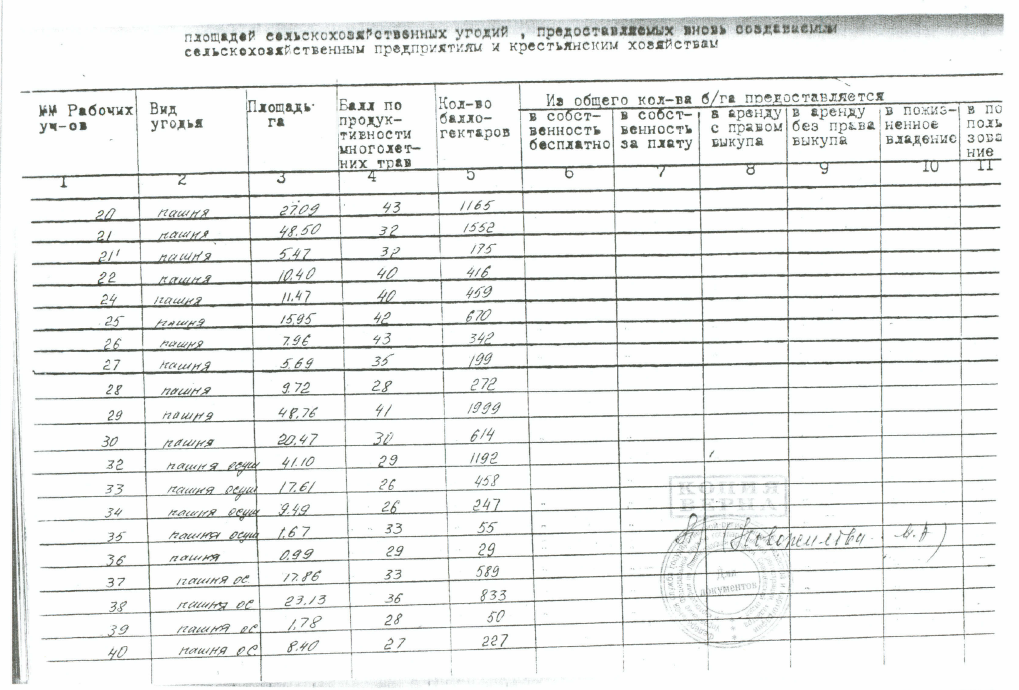 площадей сельскохозяйственных угодий , предоставляемых вновь создаваемым
сельскохозяйственным предприятиям и крестьянским хозяйствам
№№ Рабочих уч-ов
Вид угодья
Площадь га
Балл по продук-тивности многолет-них трав
Кол-во балло-гектаров
Из общего кол-ва б/га предоставляется
в собст-венность бесплатно
в собст-венность за плату
в аренду с правом выкупа
в аренду без права выкупа
в пожиз-ненное владение
в по польз зова ние
1 2 3 4 5 6 7 8 9 10 11
20 пашня 27.09 43 1165
21 пашня 48.50 32 1552
21' пашня 5.47 32 175
22 пашня 10.40 40 416
24 пашня 11.47 40 459
25 пашня 15.95 42 670
26 пашня 7.96 43 342
27 пашня 5.69 35 199
28 пашня 9.72 28 272
29 пашня 48.76 41 1999
30 пашня 20.47 30 614
32 пашня осуш 41.10 29 1192
33 пашня осуш 17.61 26 458
34 пашня осуш 9.49 26 247
35 пашня осуш 1.67 33 55
36 пашня 0.99 29 29
37 пашня ос 17.86 33 589
38 пашня ос 23.13 36 833
39 пашня ос 1.78 28 50
40 пашня ос. 8.40 27 227
КОПИЯ
ВЕРНА
Для
документов